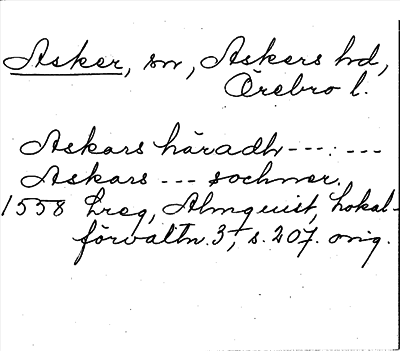 Asker, sn, Askers hd,
Örebro l.
Askars häradh ---:---
Askars --- sochner.
1558 Lreg, Almquist, Lokal-
förvaltn. 3, s. 207. orig.